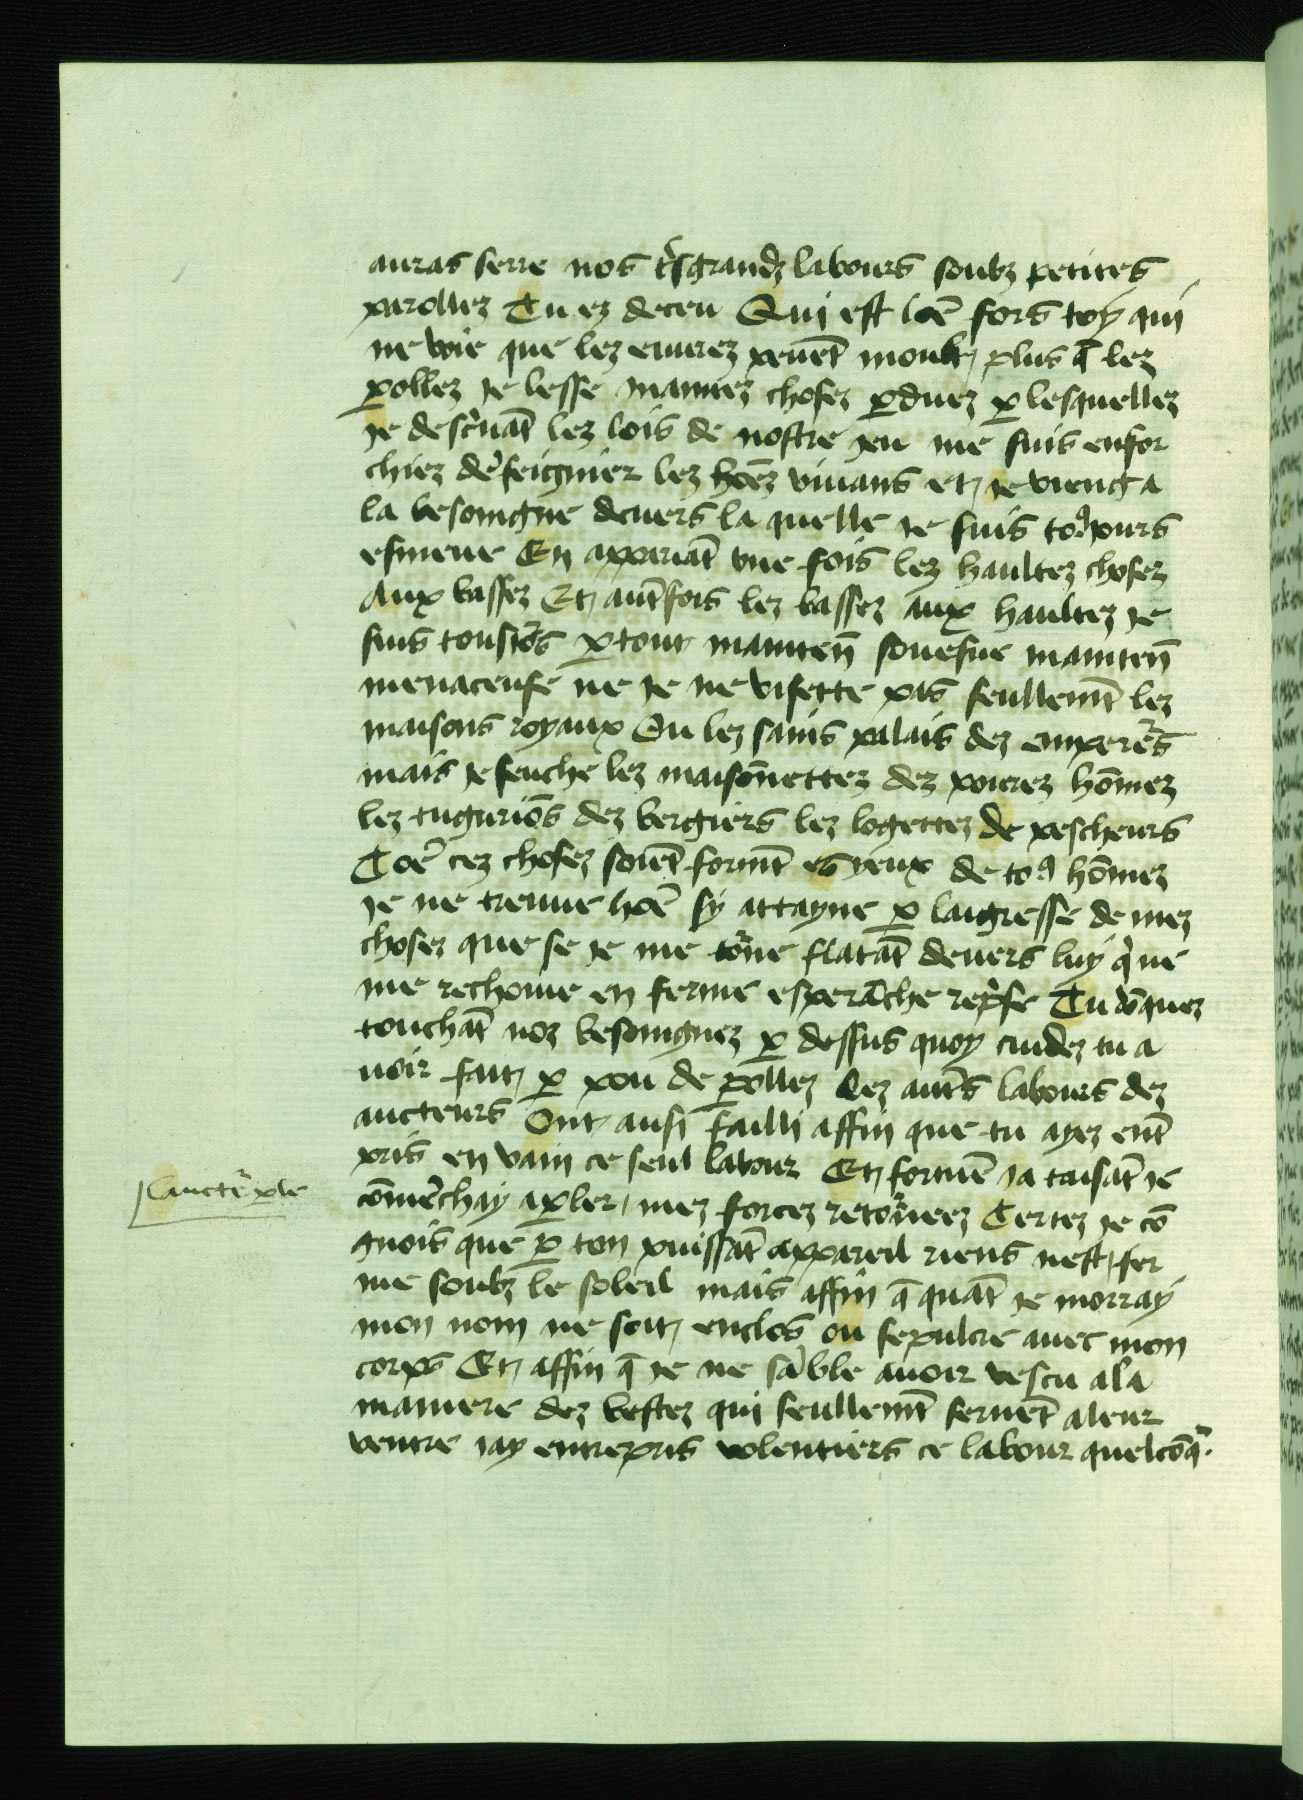 auras serre nos t̃sgrandz labours soubz petites
parollez Tu ez deceu Qui est loẽ fors toy qui
ne voie que lez euurez peuẽt moult plus q̃ lez
ꝑollez Je lesse maintez chosez ꝑduez ꝑ lesquellez
je descⁱuãt lez lois de nostre jeu me suis enfor
chiez de seignier lez hoẽz viuans et je vieng a
la besoingne deuers la quelle je suis toꝰjours
esmeue En appariãt vne fois lez haultez chosez
Aux bassez Et aut̃fois lez bassez aux haultez je
suis tousiõs ꝑtout mainteñ souefue mainteñ
menaceuse ne je ne visette pas seullemt̃ lez
maisons royaux Ou lez sains palais dez emperer̃s
mais je seuche lez maisoñettez dez pourez hõmez
lez tuguriõs dez bergiers lez logettez de pescheurs
Coẽ cez chosez soiẽt formt̃ es yeux de toꝰ hõmez
je ne treuue hoẽ sy attayne ꝑ laigresse de mez
chosez que se je me tõne flatãt deuers luy qⁱ ne
me rechoiue en ferme esperãche rep̃se Tu dõquez
touchãt noz besoingnez ꝑ dessus quoy cuidez tu a
uoir fait ꝑ pou de ꝑollez Lez aut̃s labours dez
aucteurs Ont ausi failli affin que tu ayez ent̃
pris en vain ce seul labour Et fortuẽ ja taisãt je
cõmẽchay a ꝑler mez forcez retõneez Certez je cõ
gnois que ꝑ ton puissãt appareil riens nest fer
me soubz le soleil mais affin q̃ quãt je morray
mon nom ne soit enclos ou sepulcre auec mon
corps Et affin q̃ je ne sãble auoir vescu a la
maniere dez bestez qui seullemt̃ seruẽt a leur
ventre jay entrepris volentiers ce labour quelcõq̃.
laucte᷑ ple